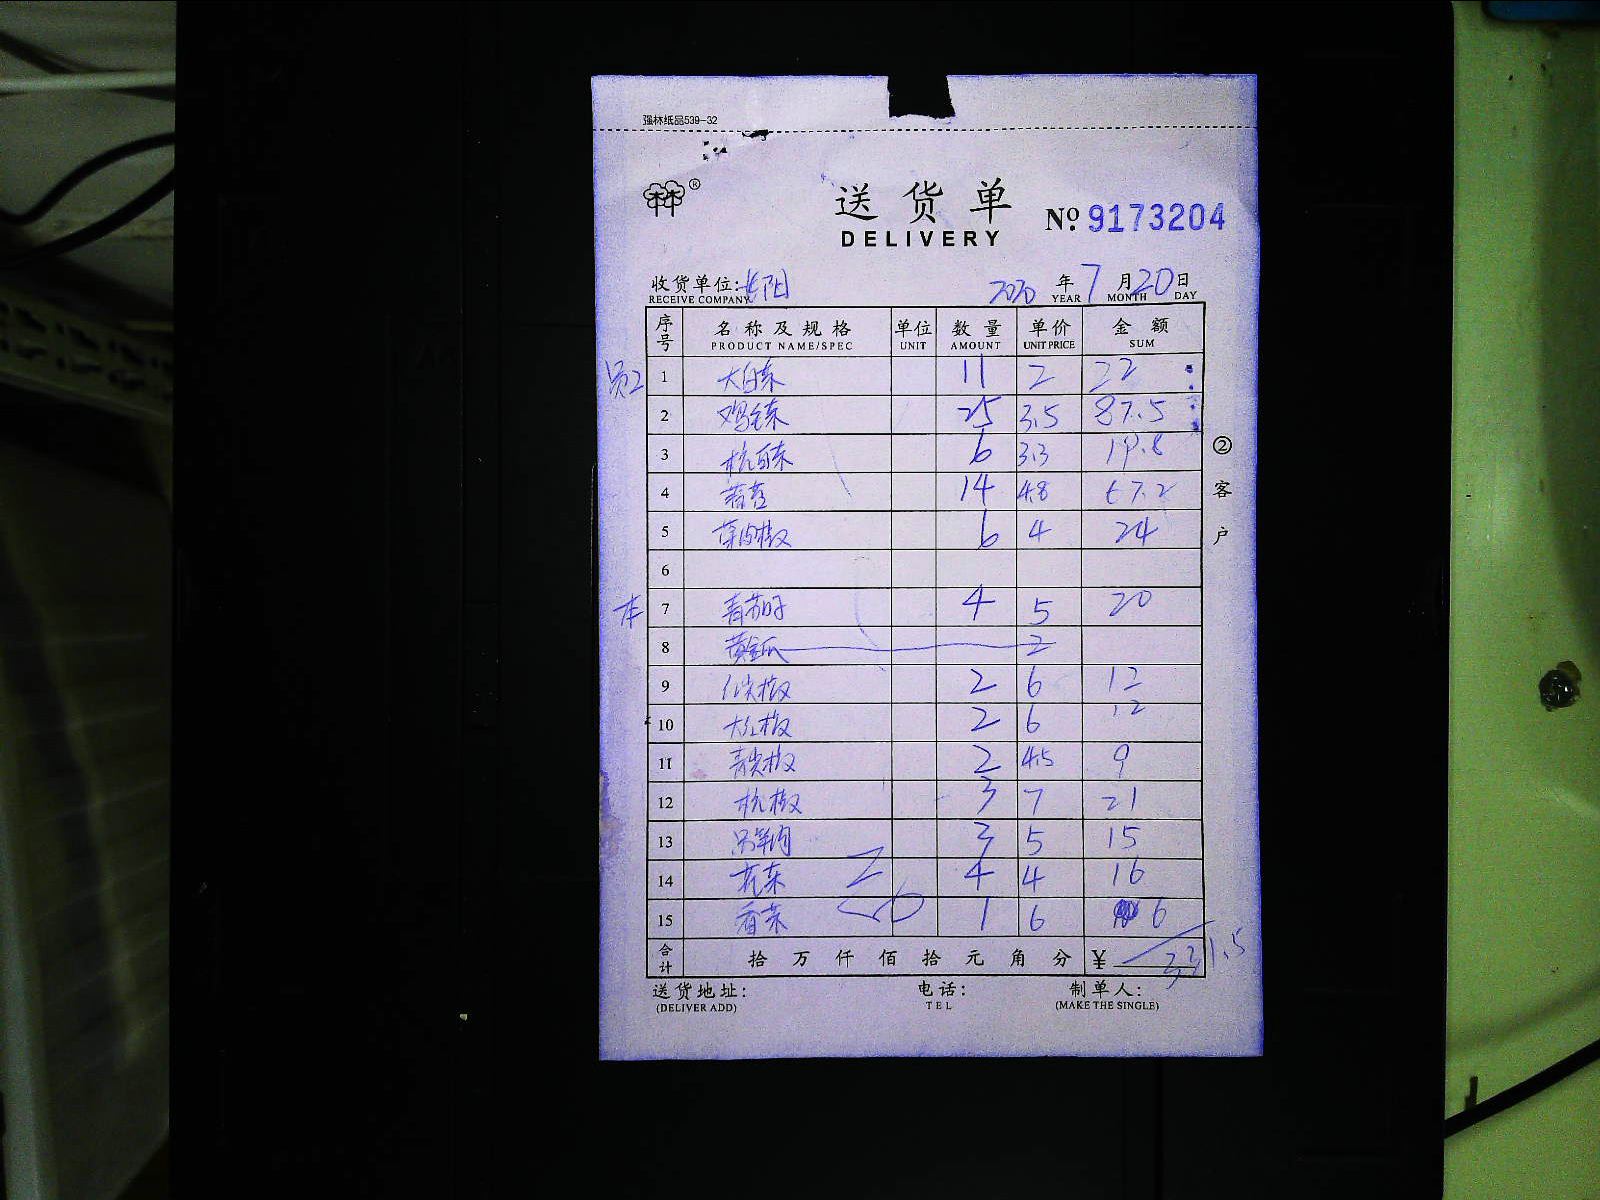 强林纸品539-32
林林®
送货单
DELIVERY
No. 9173204
收货单位: 长阳 2020年7月20日
RECEIVE COMPANY YEAR MONTH DAY
序号 名称及规格 单位 数量 单价 金额
PRODUCT NAME/SPEC UNIT AMOUNT UNIT PRICE SUM
员工 1 大白菜 11 2 22
2 鸡全菜 25 3.5 87.5
3 杭白菜 6 3.3 19.8
4 14 4.8 67.2
5 菜肉椒 6 4 24
6
本 7 青茄子 4 5 20
8 黄金瓜 2
9 红尖椒 2 6 12
10 大红椒 2 6 12
11 青尖椒 2 4.5 9
12 杭椒 3 7 21
13 3 5 15
14 花菜 4 4 16
15 香菜 1 6 6
合计 拾万仟佰拾元角分 ¥ 331.5
送货地址: 电话: 制单人:
(DELIVER ADD) TEL (MAKE THE SINGLE)
②客户